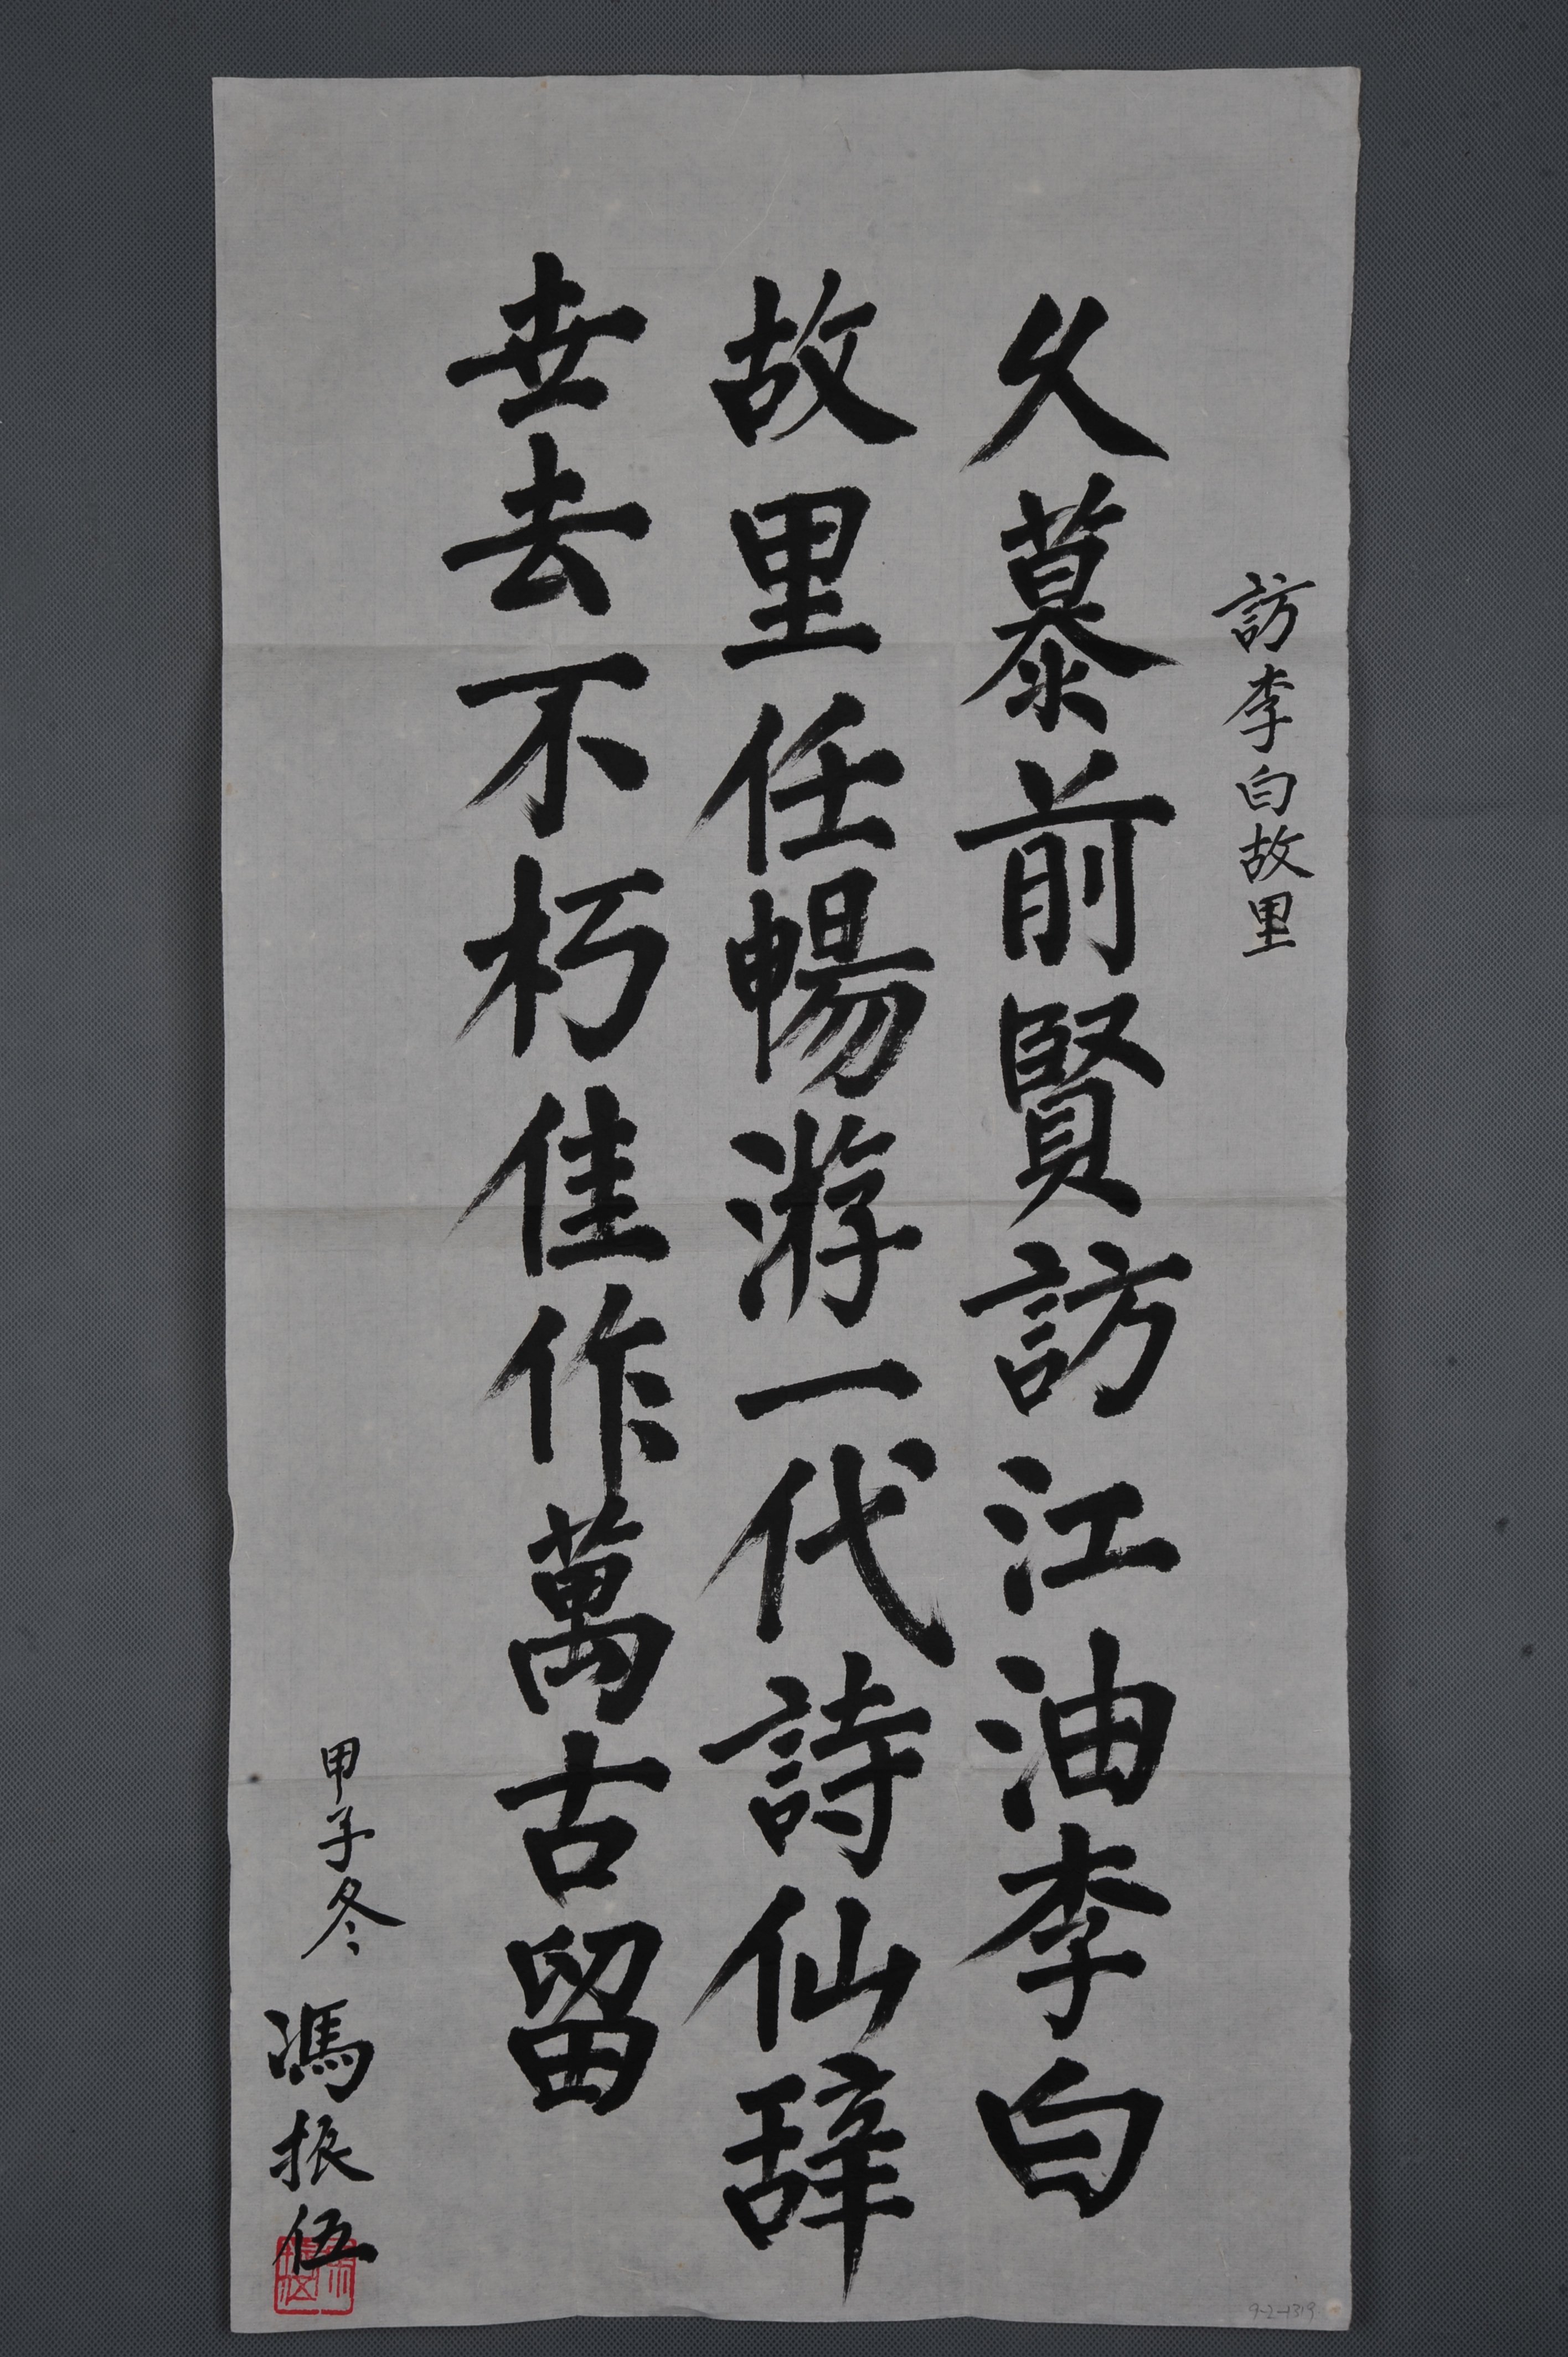 訪李白故里
久慕前賢訪江油李白
故里任暢游一代詩仙辞
世去不朽佳作萬古留
甲子冬
馮振伍
9-2-1319